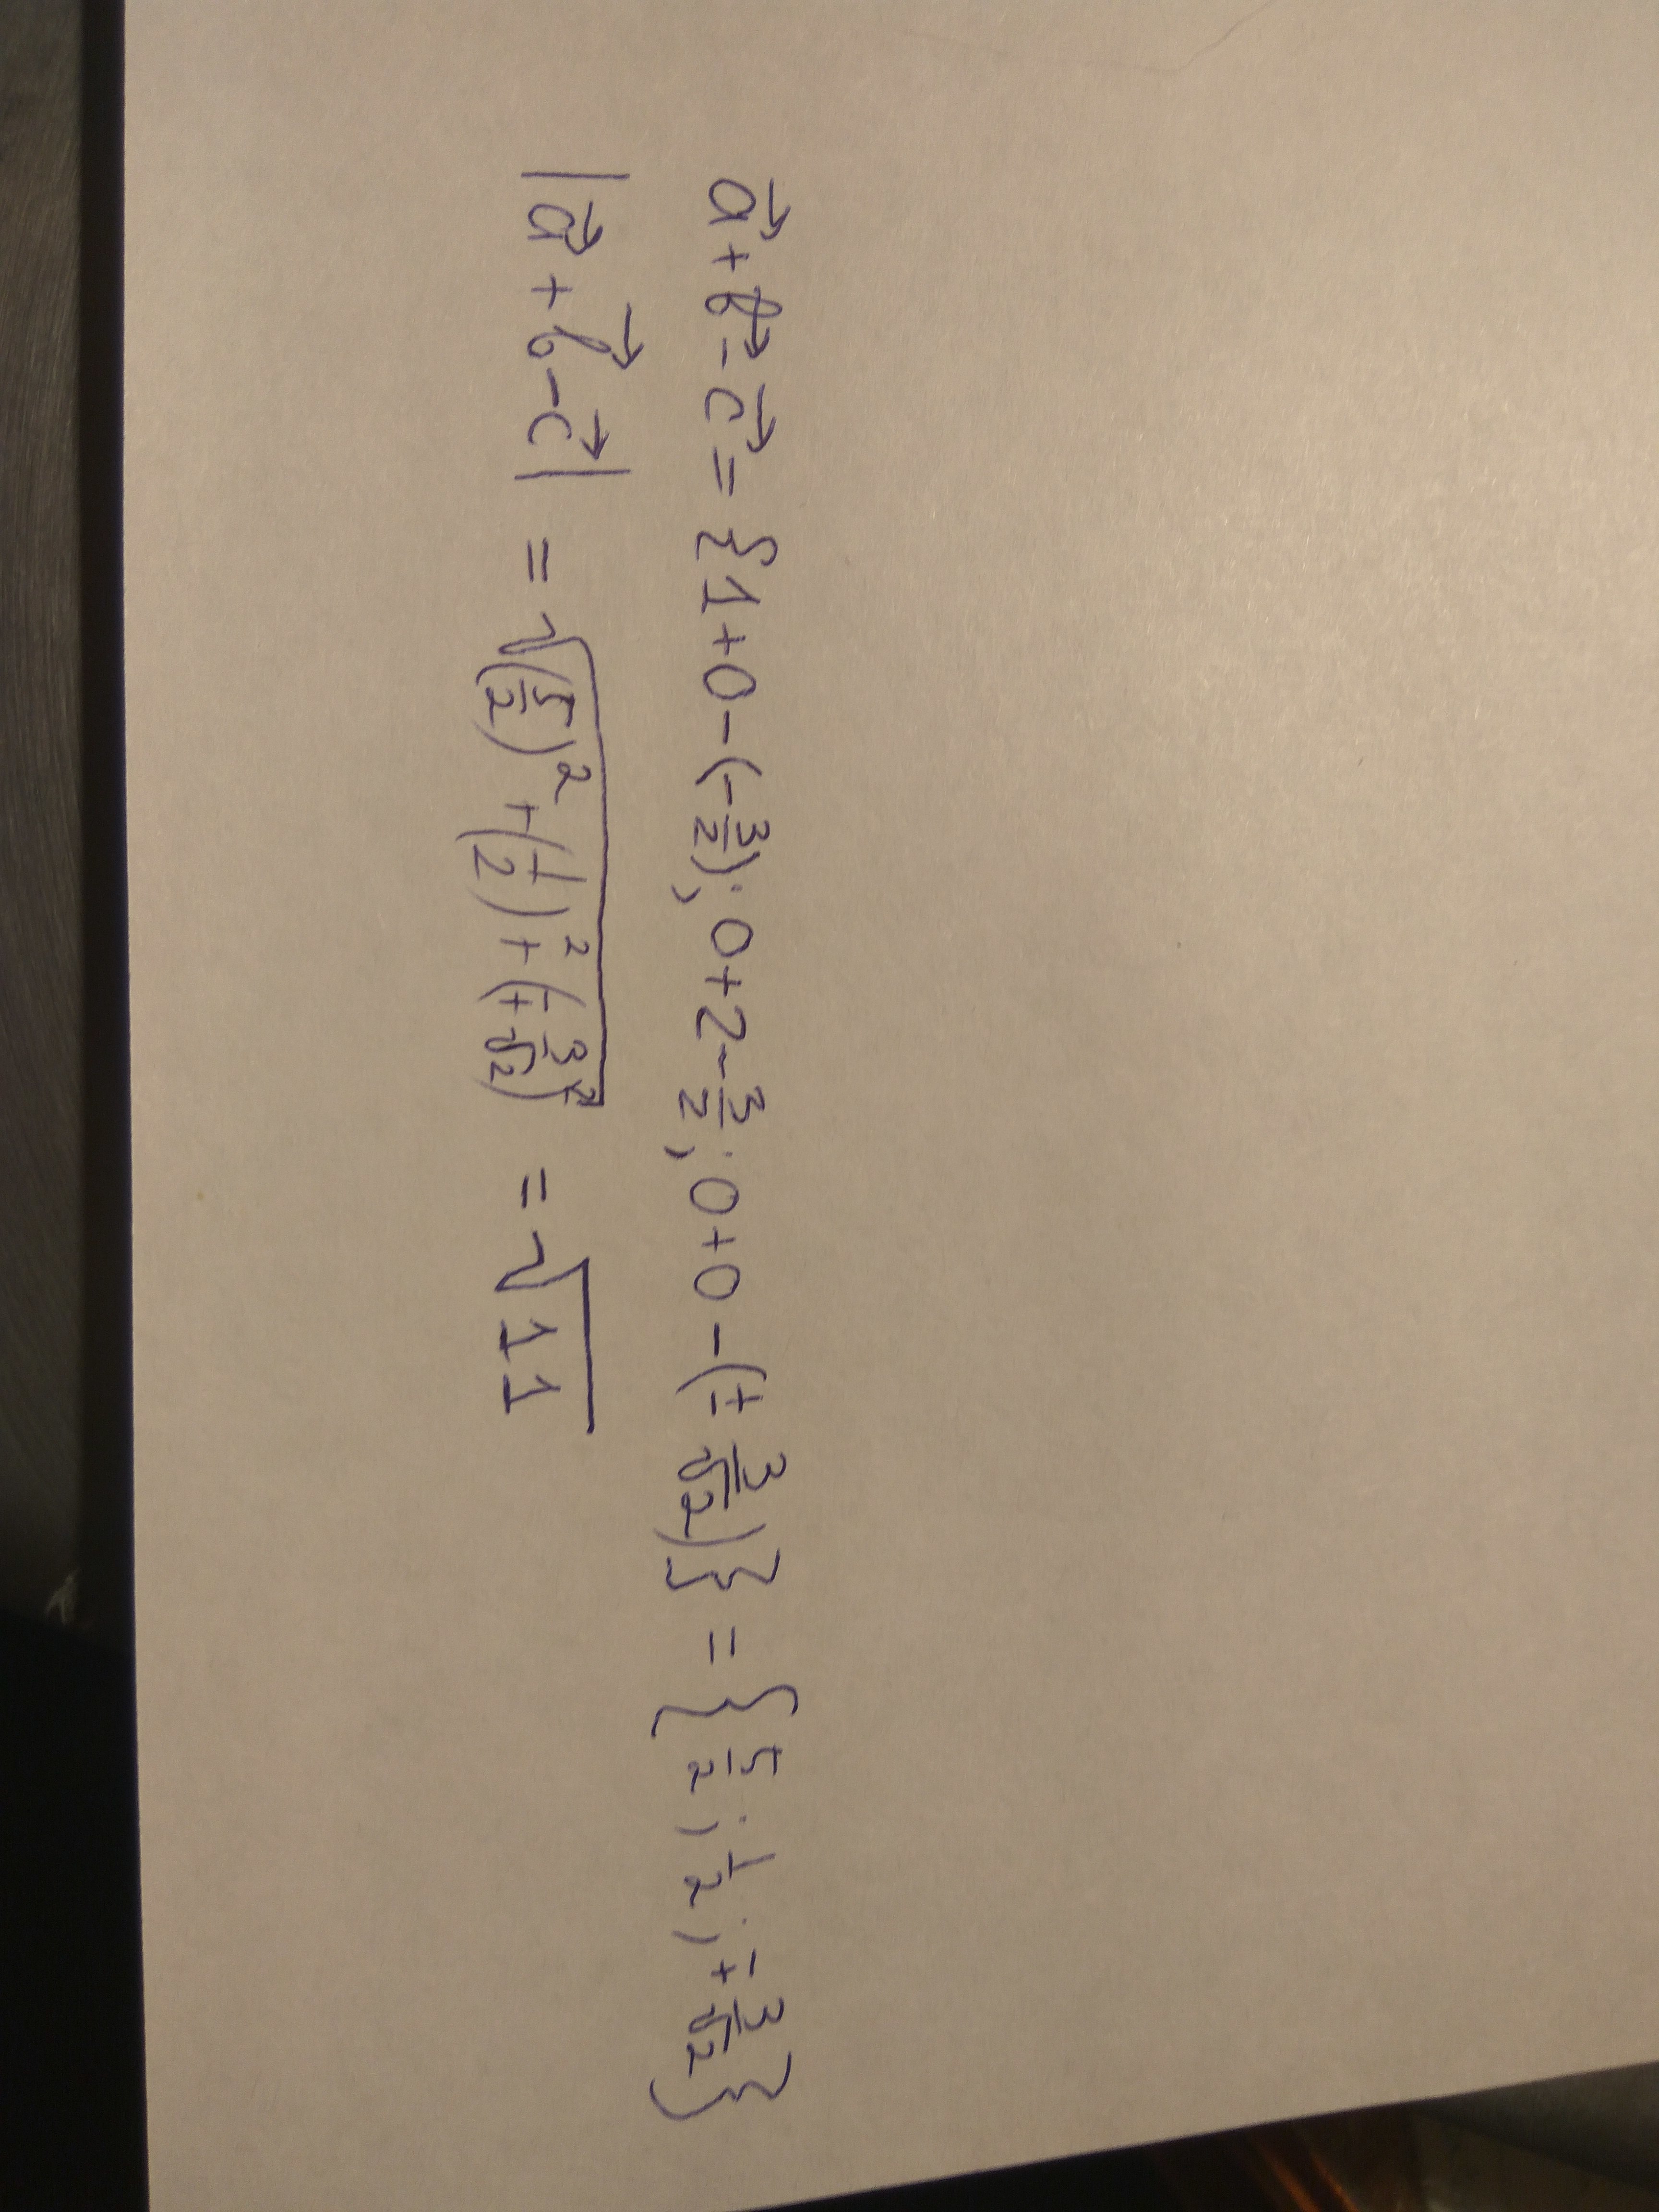 a⃗ + b⃗ - c⃗ = {1+0-(-3/2); 0+2-3/2; 0+0-(±3/√2)} = {5/2; 1/2; ∓3/√2}
|a⃗ + b⃗ - c⃗| = √((5/2)² + (1/2)² + (∓3/√2)²) = √11